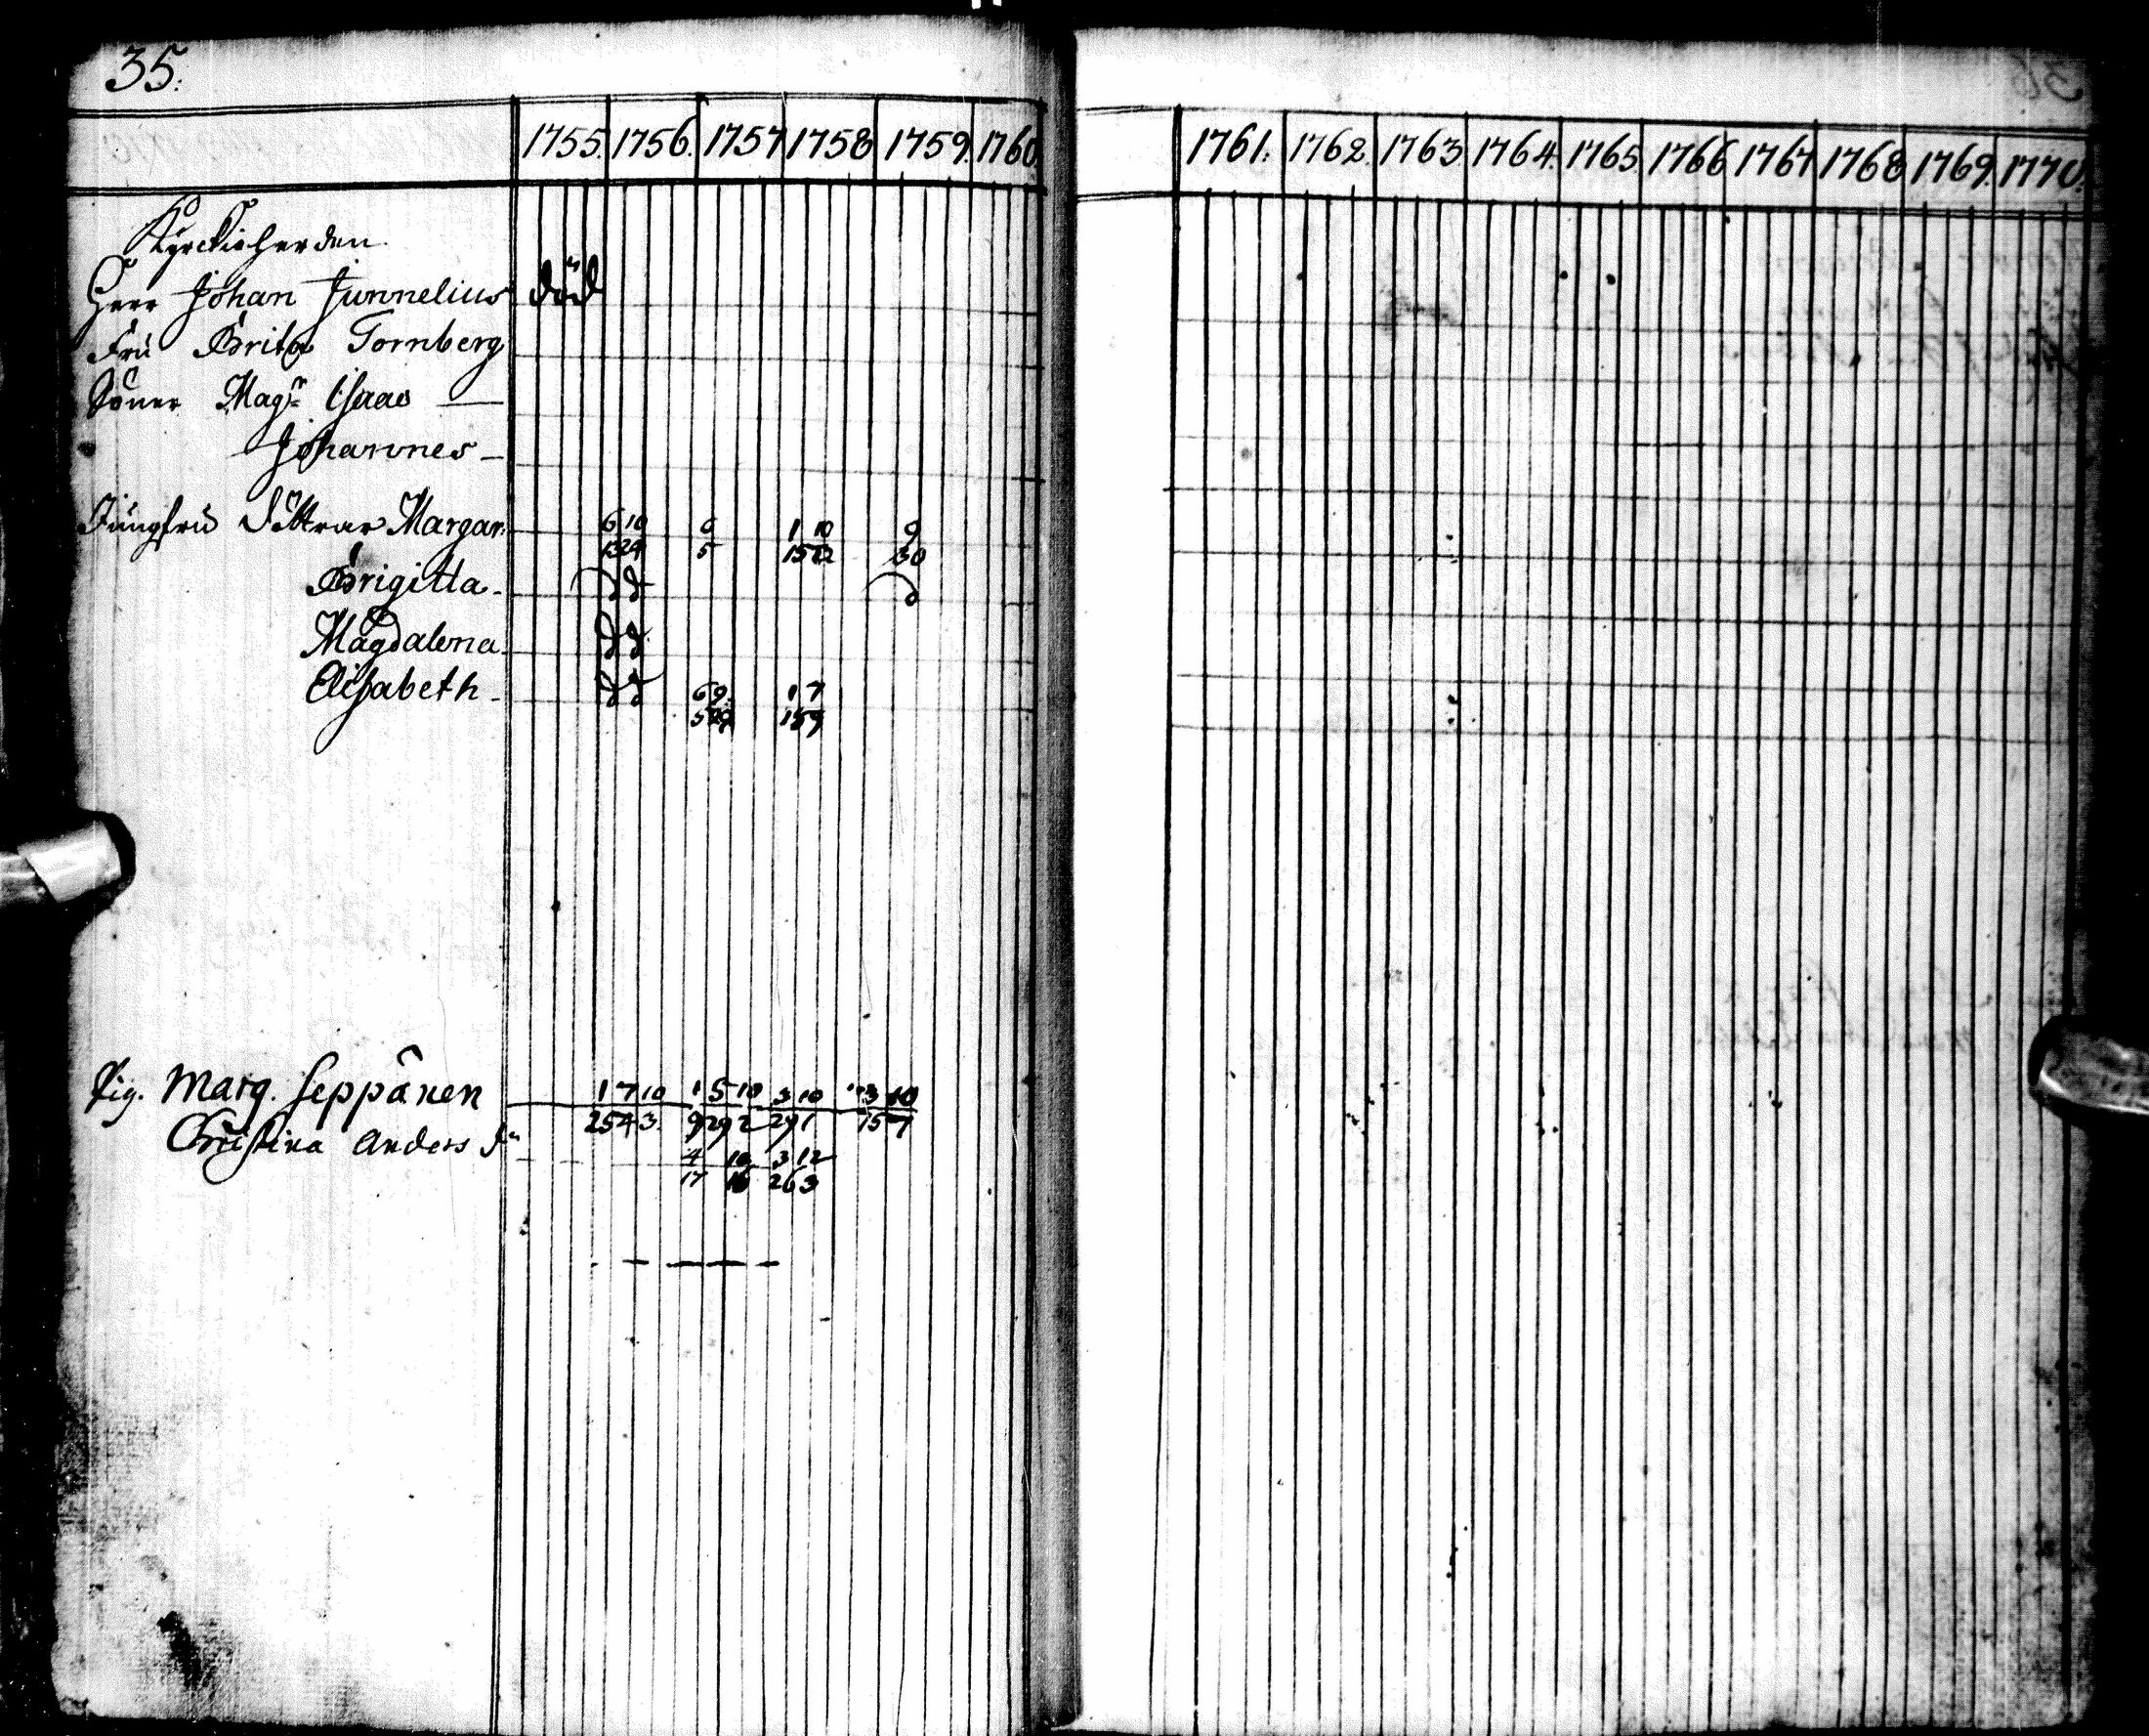 35.
1755. 1756. 1757 1758 1759. 1760.
1761. 1762. 1763. 1764. 1765. 1766 1767 1768 1769. 1770.
Kyrckioherden
Herr Johan Junnelius död
Fru Brita Tornberg
Söner Magr Isaac —
Johannes —
Jungfru Döttrar Margar: 6 10 6 1 10 9
13 24 5 15 22 30
Brigitta -
Magdalena -
Elisabeth - 6 9 1 7
5 29 15 9
Pig. Marg. Seppänen 1 7 10 1 5 10 3 10 3 10
25 4 3 9 29 2 29 1 15 7
Christina Anders dr
4 10 3 12
17 16 26 3